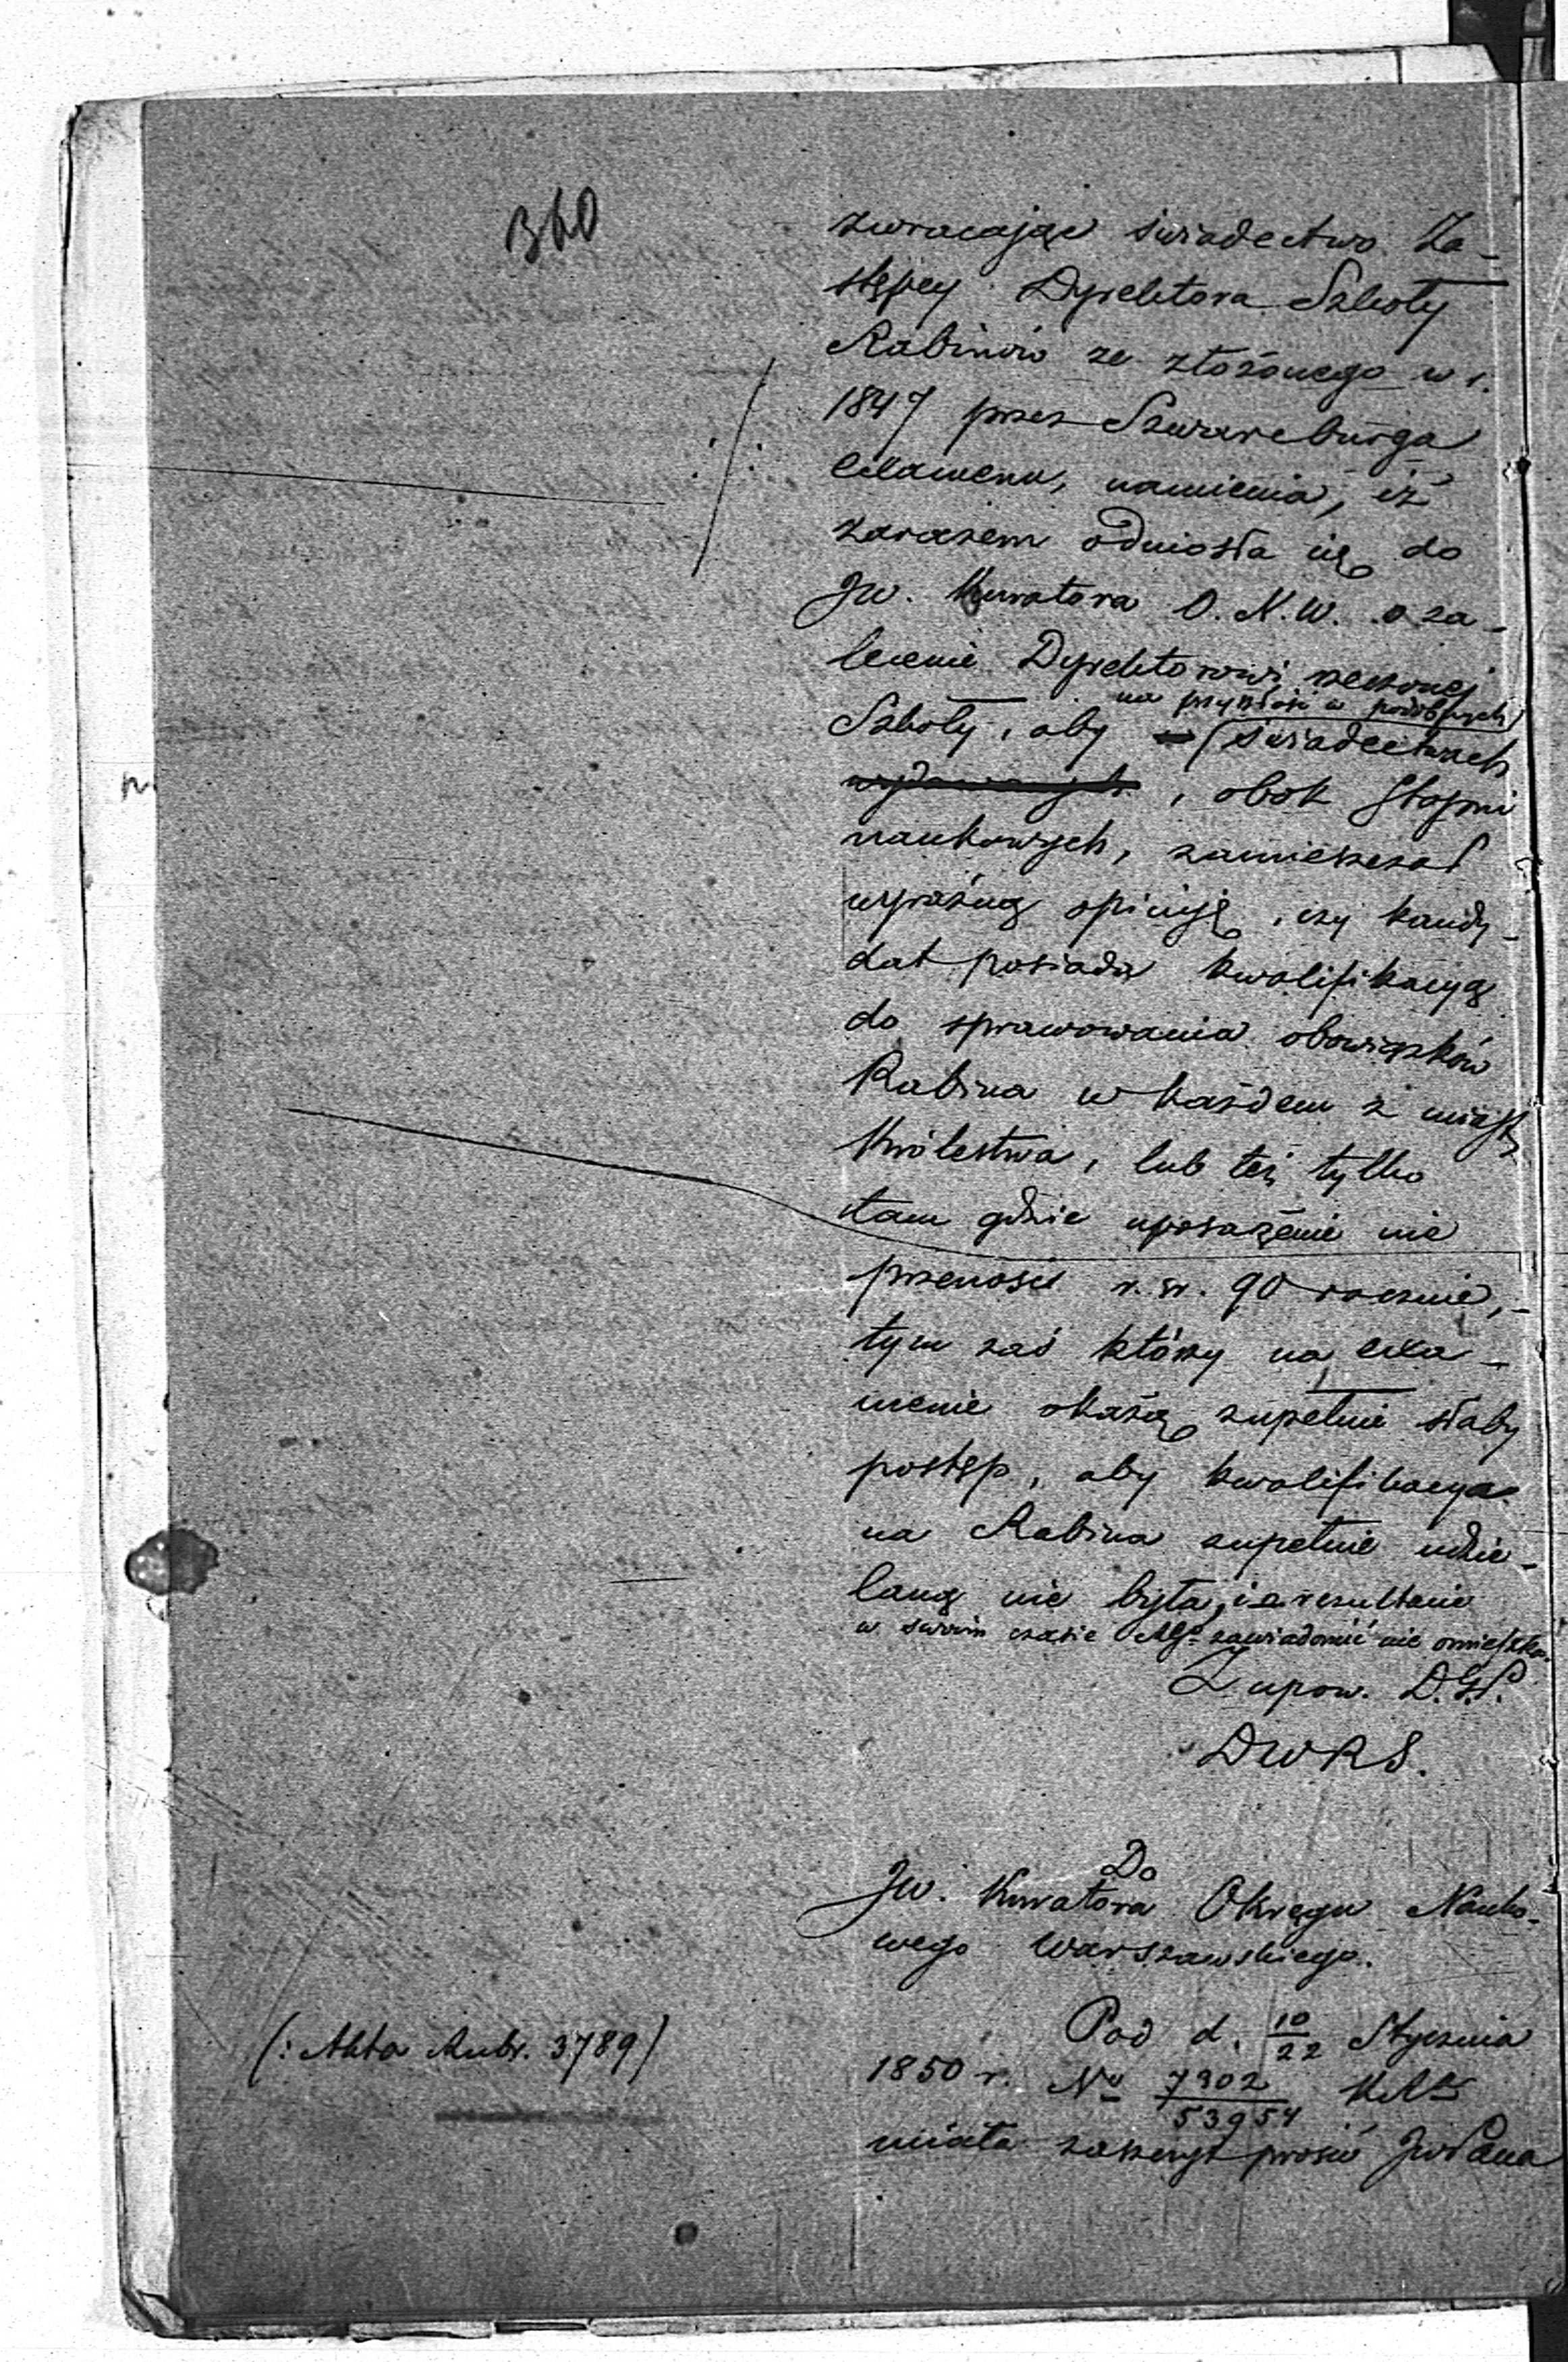 360
zwracając świadectwo Za-
stępcy Dyrektora Szkoły
Rabinów ze złożonego w r.
1847 przez Szwarcburga
examenu, namienia, iż
zarazem odniosła się do
JW. Kuratora O. N. W. o za-
lecenie Dyrektorowi rzeczonej
na przyszłość w podobnych
Szkoły, aby świadectwach
wydawanych, obok stopni
naukowych, zamieszczał
wyraźną opiniję, czy kandy-
dat posiada kwalifikacyą
do sprawowania obowiązków
Rabina w każdem z miast
Królestwa, lub też tylko
tam gdzie uposażenie nie
przenosi r. sr. 90 rocznie,-
tym zaś którzy na exa-
menie okażą zupełnie słaby
postęp, aby kwalifikacya
na Rabina zupełnie udzie-
laną nie była, i o rezultacie
w swoim czasie zawiadomić nie omieszka.
Z upow. D. G.
DWRS.
Do
JW. Kuratora Okręgu Nauko-
wego Warszawskiego.
Pod d. 10/22 Stycznia
(: Akta Rubr. 3789)
1850 r. No 7902/53954
miała zaszczyt prosić JWPana